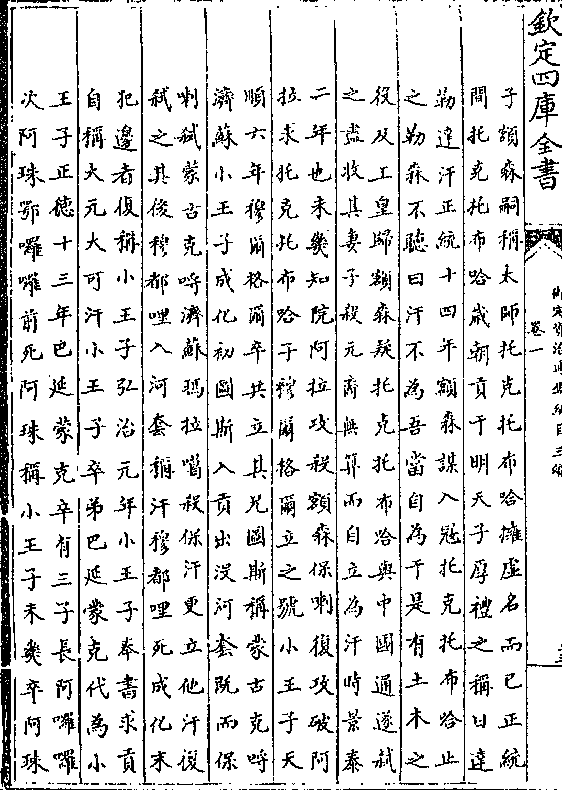 欽定四庫全書
御定資治通鑑綱目三編
卷一
子額森嗣稱太師托克托布哈擁虛名而已正統
間托克托布哈歲朝貢于明天子厚禮之稱曰達
勒達汗正統十四年額森謀入冦托克托布哈止
之勒森不聽曰汗不為吾當自為于是有土木之
役及上皇歸額森疑托克托布哈與中國通遂弑
之盡收其妻子殺元裔無算而自立為汗時景泰
二年也未幾知院阿拉攻殺額森保喇復攻破阿
拉求托克托布哈子穆爾格爾立之號小王子天
順六年穆爾格爾卒共立其兄圖斯稱蒙古克呼
濟蘇小王子成化初圖斯入貢出没河套既而保
喇弑蒙古克呼濟蘇瑪拉噶殺保汗更立他汗復
弑之其後穆都哩入河套稱汗穆都哩死成化末
犯邊者復稱小王子弘治元年小王子奉書求貢
自稱大元大可汗小王子卒弟巴延蒙克代為小
王子正徳十三年巴延蒙克卒有三子長阿囉囉
次阿珠鄂囉囉前死阿珠稱小王子未幾卒阿珠